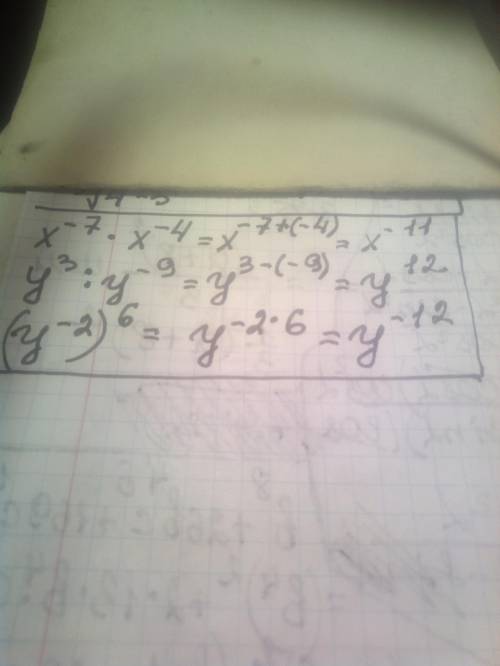 x⁻⁷ · x⁻⁴ = x⁻⁷⁺⁽⁻⁴⁾ = x⁻¹¹
y³ : y⁻⁹ = y³⁻⁽⁻⁹⁾ = y¹²
(y⁻²)⁶ = y⁻²·⁶ = y⁻¹²